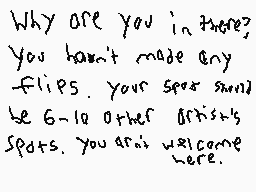 Why are you in there?
You havn't made any
flips. your spot should
be 6-10 other Artist's
spots. you arn't welcome
here.